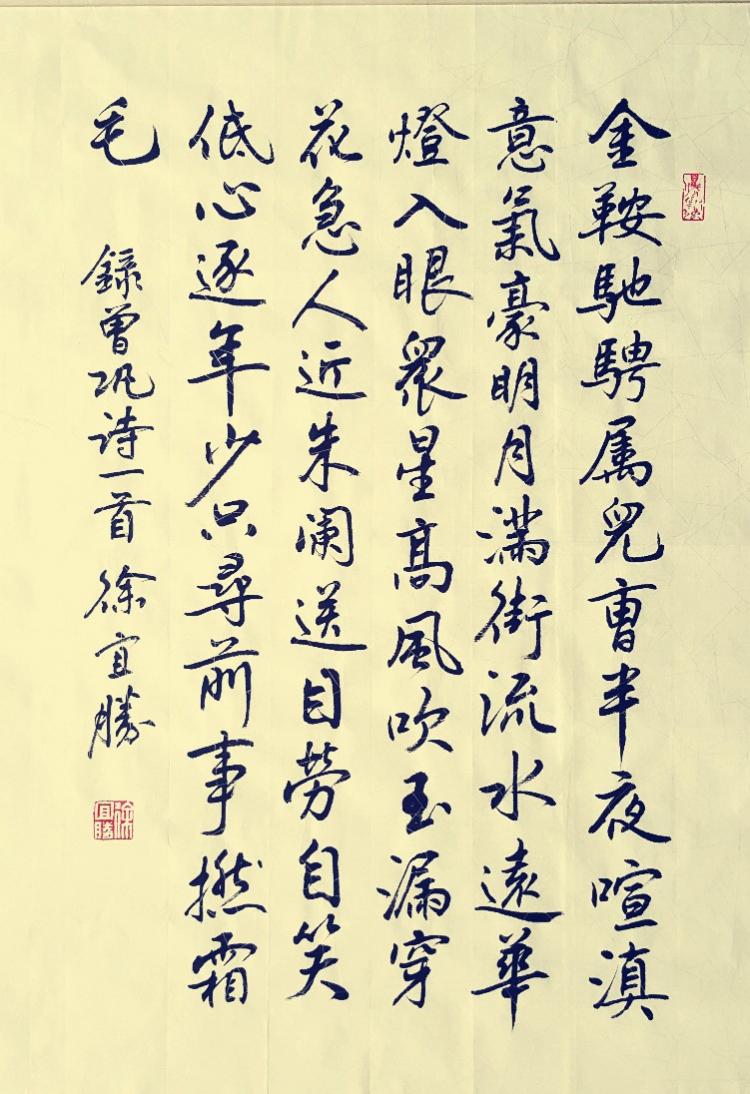 金鞍馳騁属兒曹半夜喧滇
意氣豪明月滿街流水遠華
燈入眼眾星高風吹玉漏穿
花急人近朱阑送目劳自笑
低心逐年少只尋前事撚霜
毛
録曾巩诗一首 徐宜勝
徐宜勝